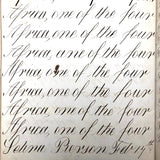 Africa, one of the four
Africa, one of the four
Africa, one of the four
Africa, one of the four
Africa, one of the four
Africa, one of the four
Africa, one of the four
Pierson Feb 19th